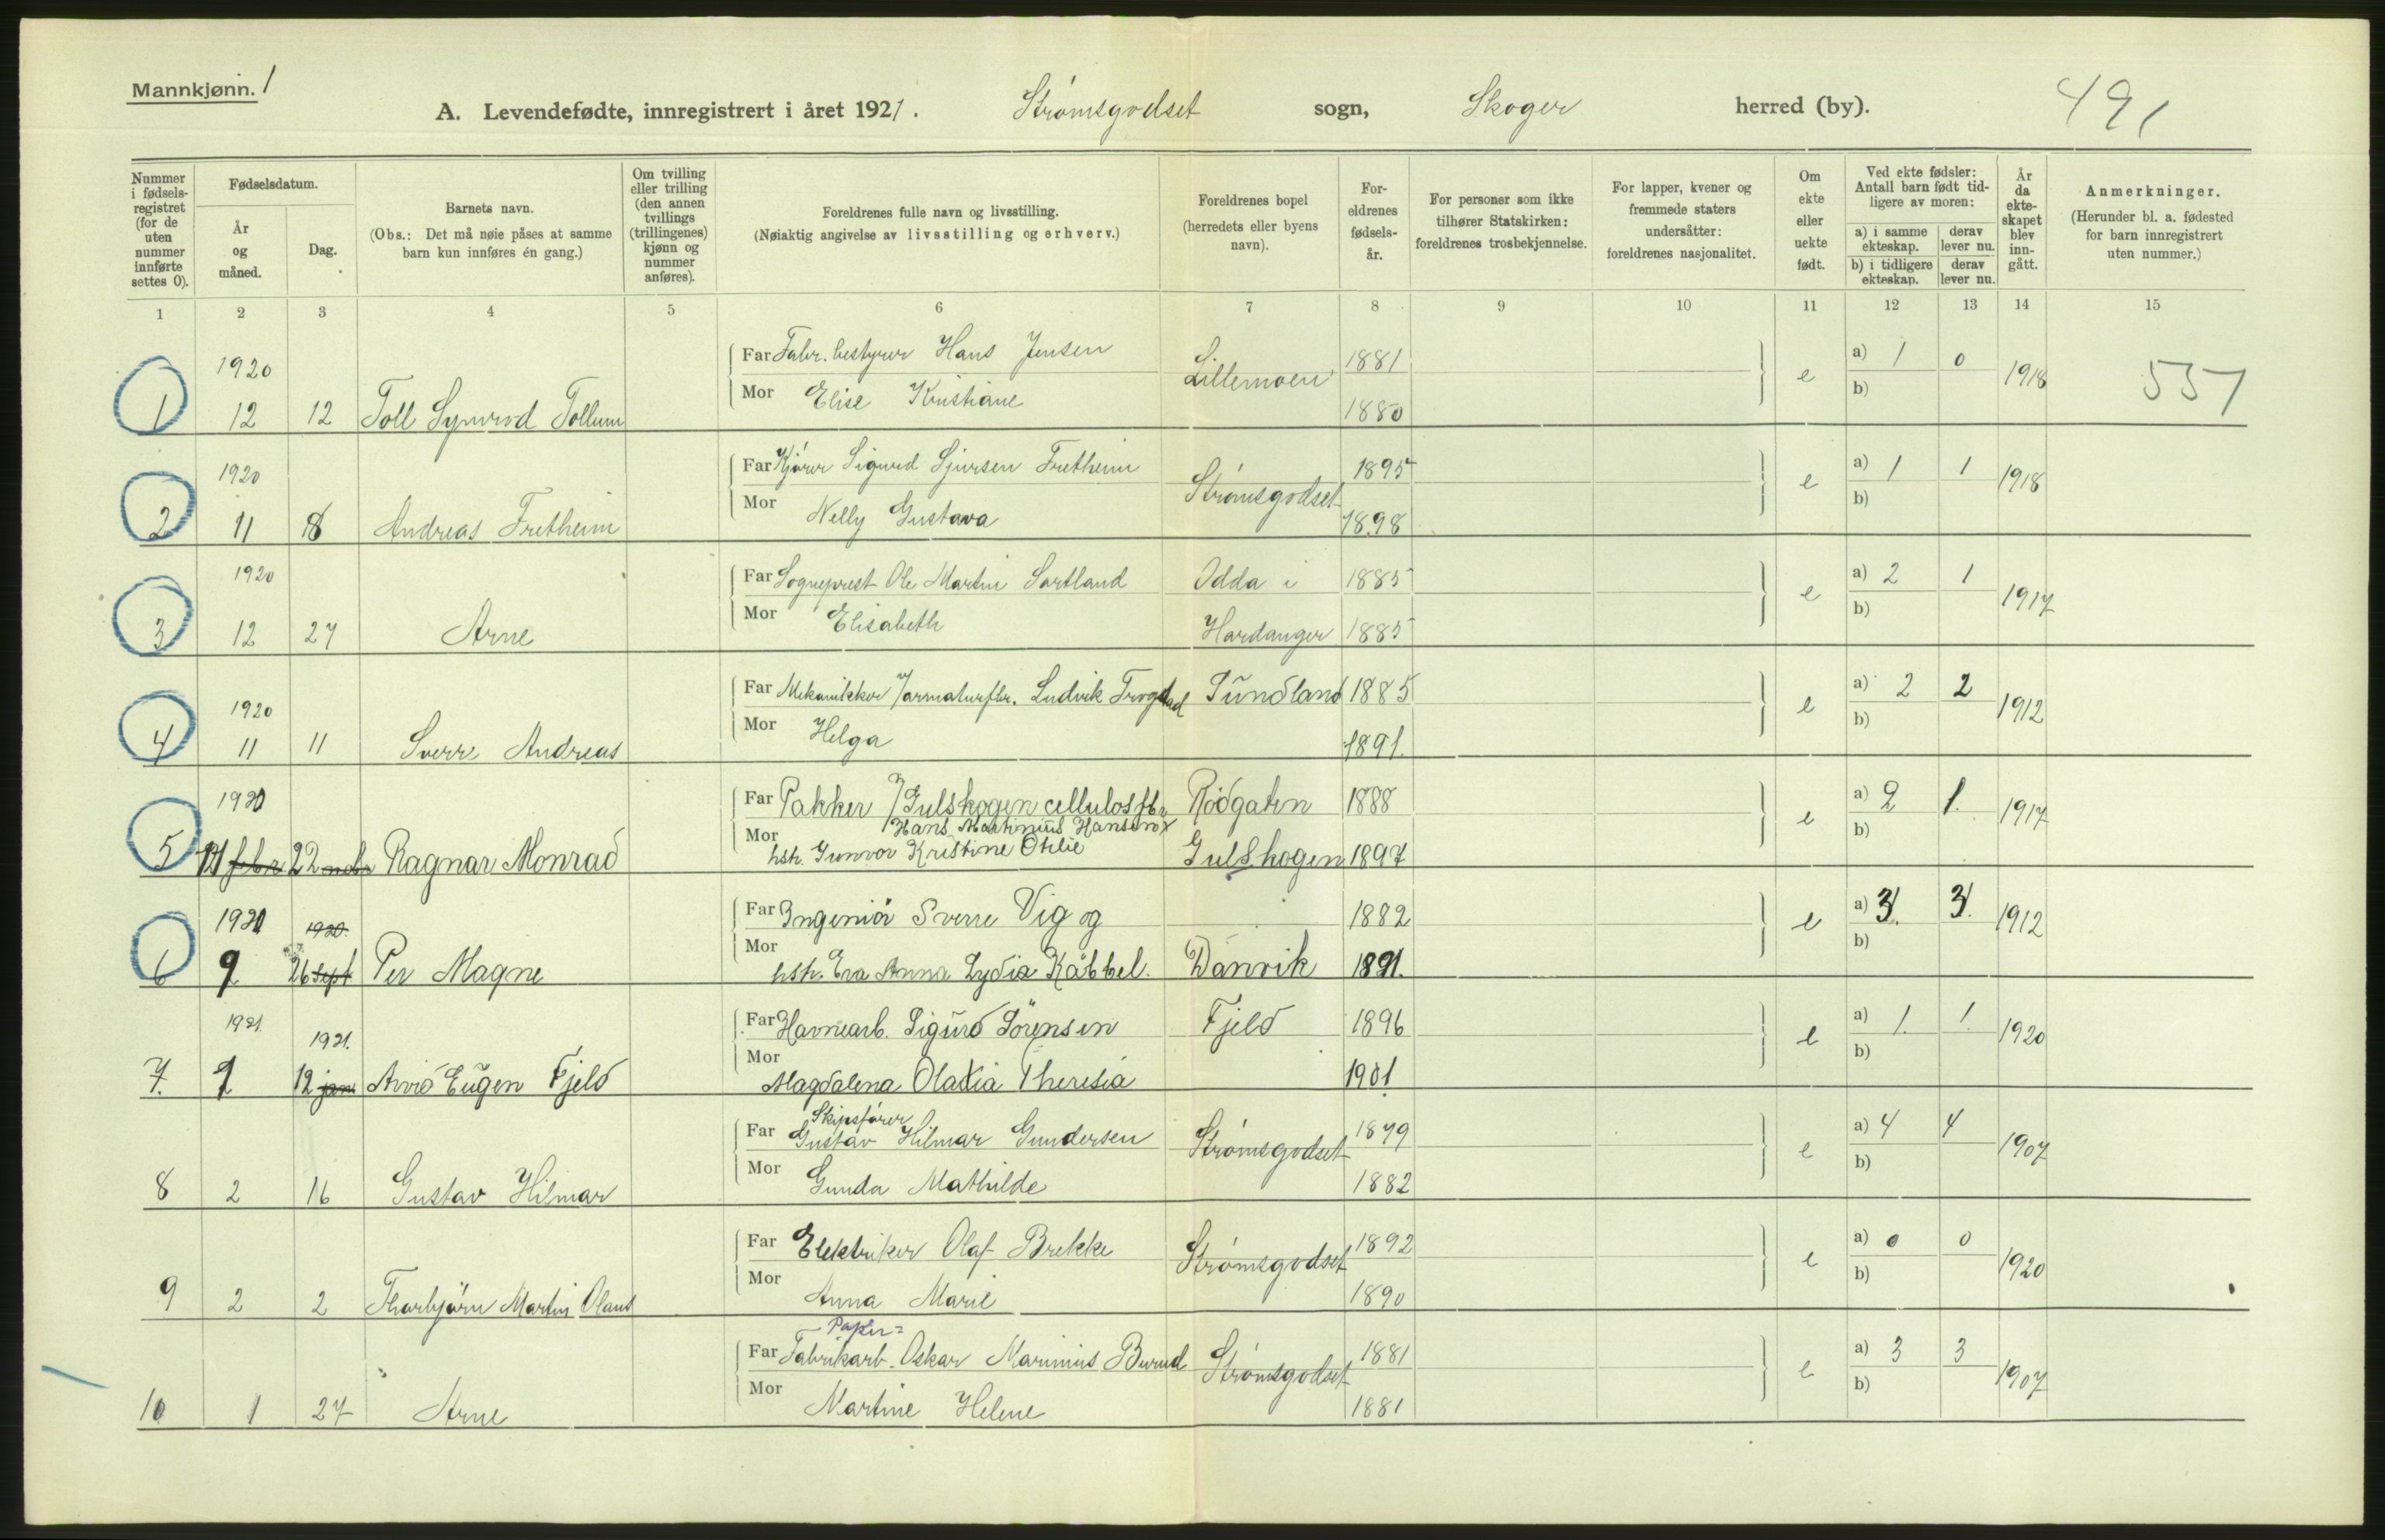 Mannkjønn. 1
A. Levendefødte, innregistrert i året 1921. Strømsgodset sogn, Skoger herred (by). 491
Nummer i fødselsregistret (for de uten nummer innførte settes 0).
Fødselsdatum.
År og måned.
Dag.
Barnets navn.
(Obs.: Det må nøie påses at samme barn kun innføres én gang.)
Om tvilling eller trilling (den annen tvillings (trillingenes) kjønn og nummer anføres).
Foreldrenes fulle navn og livsstilling.
(Nøiaktig angivelse av livsstilling og erhverv.)
Foreldrenes bopel
(herredets eller byens navn).
Foreldrenes fødselsår.
For personer som ikke tilhører Statskirken: foreldrenes trosbekjennelse.
For lapper, kvener og fremmede staters undersåtter: foreldrenes nasjonalitet.
Om ekte eller uekte født.
Ved ekte fødsler: Antall barn født tidligere av moren:
a) i samme ekteskap. derav lever nu.
b) i tidligere ekteskap. derav lever nu.
År da ekteskapet blev inngått.
Anmerkninger.
(Herunder bl. a. fødested for barn innregistrert uten nummer.)
1 2 3 4 5 6 7 8 9 10 11 12 13 14 15
1920 Far Fabr. bestyrer Hans Jensen Lillemoen 1881 e a) 1 0 1918 557
1 12 12 Toll Tollum Mor Elise Kristiane 1880 b)
1920 Far Kjører Sigurd Sjursen Fretheim Strømsgodset 1895 e a) 1 1 1918
2 11 18 Andreas Fretheim Mor Nelly Gustava 1898 b)
1920 Far Sogneprest Ole Martin Sartland Odda i 1885 e a) 2 1 1917
3 12 27 Arne Mor Elisabeth Hardanger 1885 b)
1920 Far Mekanikker v/armaturfbr. Ludvik Trogstad Sundland 1885 e a) 2 2 1912
4 11 11 Sverre Andreas Mor Helga 1891. b)
1920 Far Pakker v/Gulskogen cellulosfbr Rødgaten 1888 e a) 2 1. 1917
Hans Martinius Hansen
5 12 febr 22 Ragnar Monrad Mor hstr. Gunvor Kristine Otilie Gulskogen 1897 b)
1920 1920. Far Ingeniør Sverre Vig og 1882 e a) 3. 3. 1912
6 9 26 sept Per Magne Mor hstr. Eva Anna Lydia Käbbel. Danvik 1891. b)
1921. 1921. Far Havnearb. Sigurd Sörensen Fjeld 1896 e a) 1. 1. 1920
7. 1 12 jan Arvid Eugen Fjeld Mor Magdalena Olatia Theresia 1901 b)
Skipsfører
Far Gustav Hilmar Gundersen Strømsgodset 1879 e a) 4 4 1907
8 2 16 Gustav Hilmar Mor Gunda Mathilde 1882 b)
Far Elektriker Olaf Brekke Strømsgodset 1892 e a) 0 0 1920
9 2 2 Thorbjørn Martin Olaus Mor Anna Marie 1890 b)
Papir=
Far Fabrikarb. Oskar Marinius Burud Strømsgodset 1881 e a) 3 3 1907
10 1 27 Arne Mor Martine Helene 1881 b)